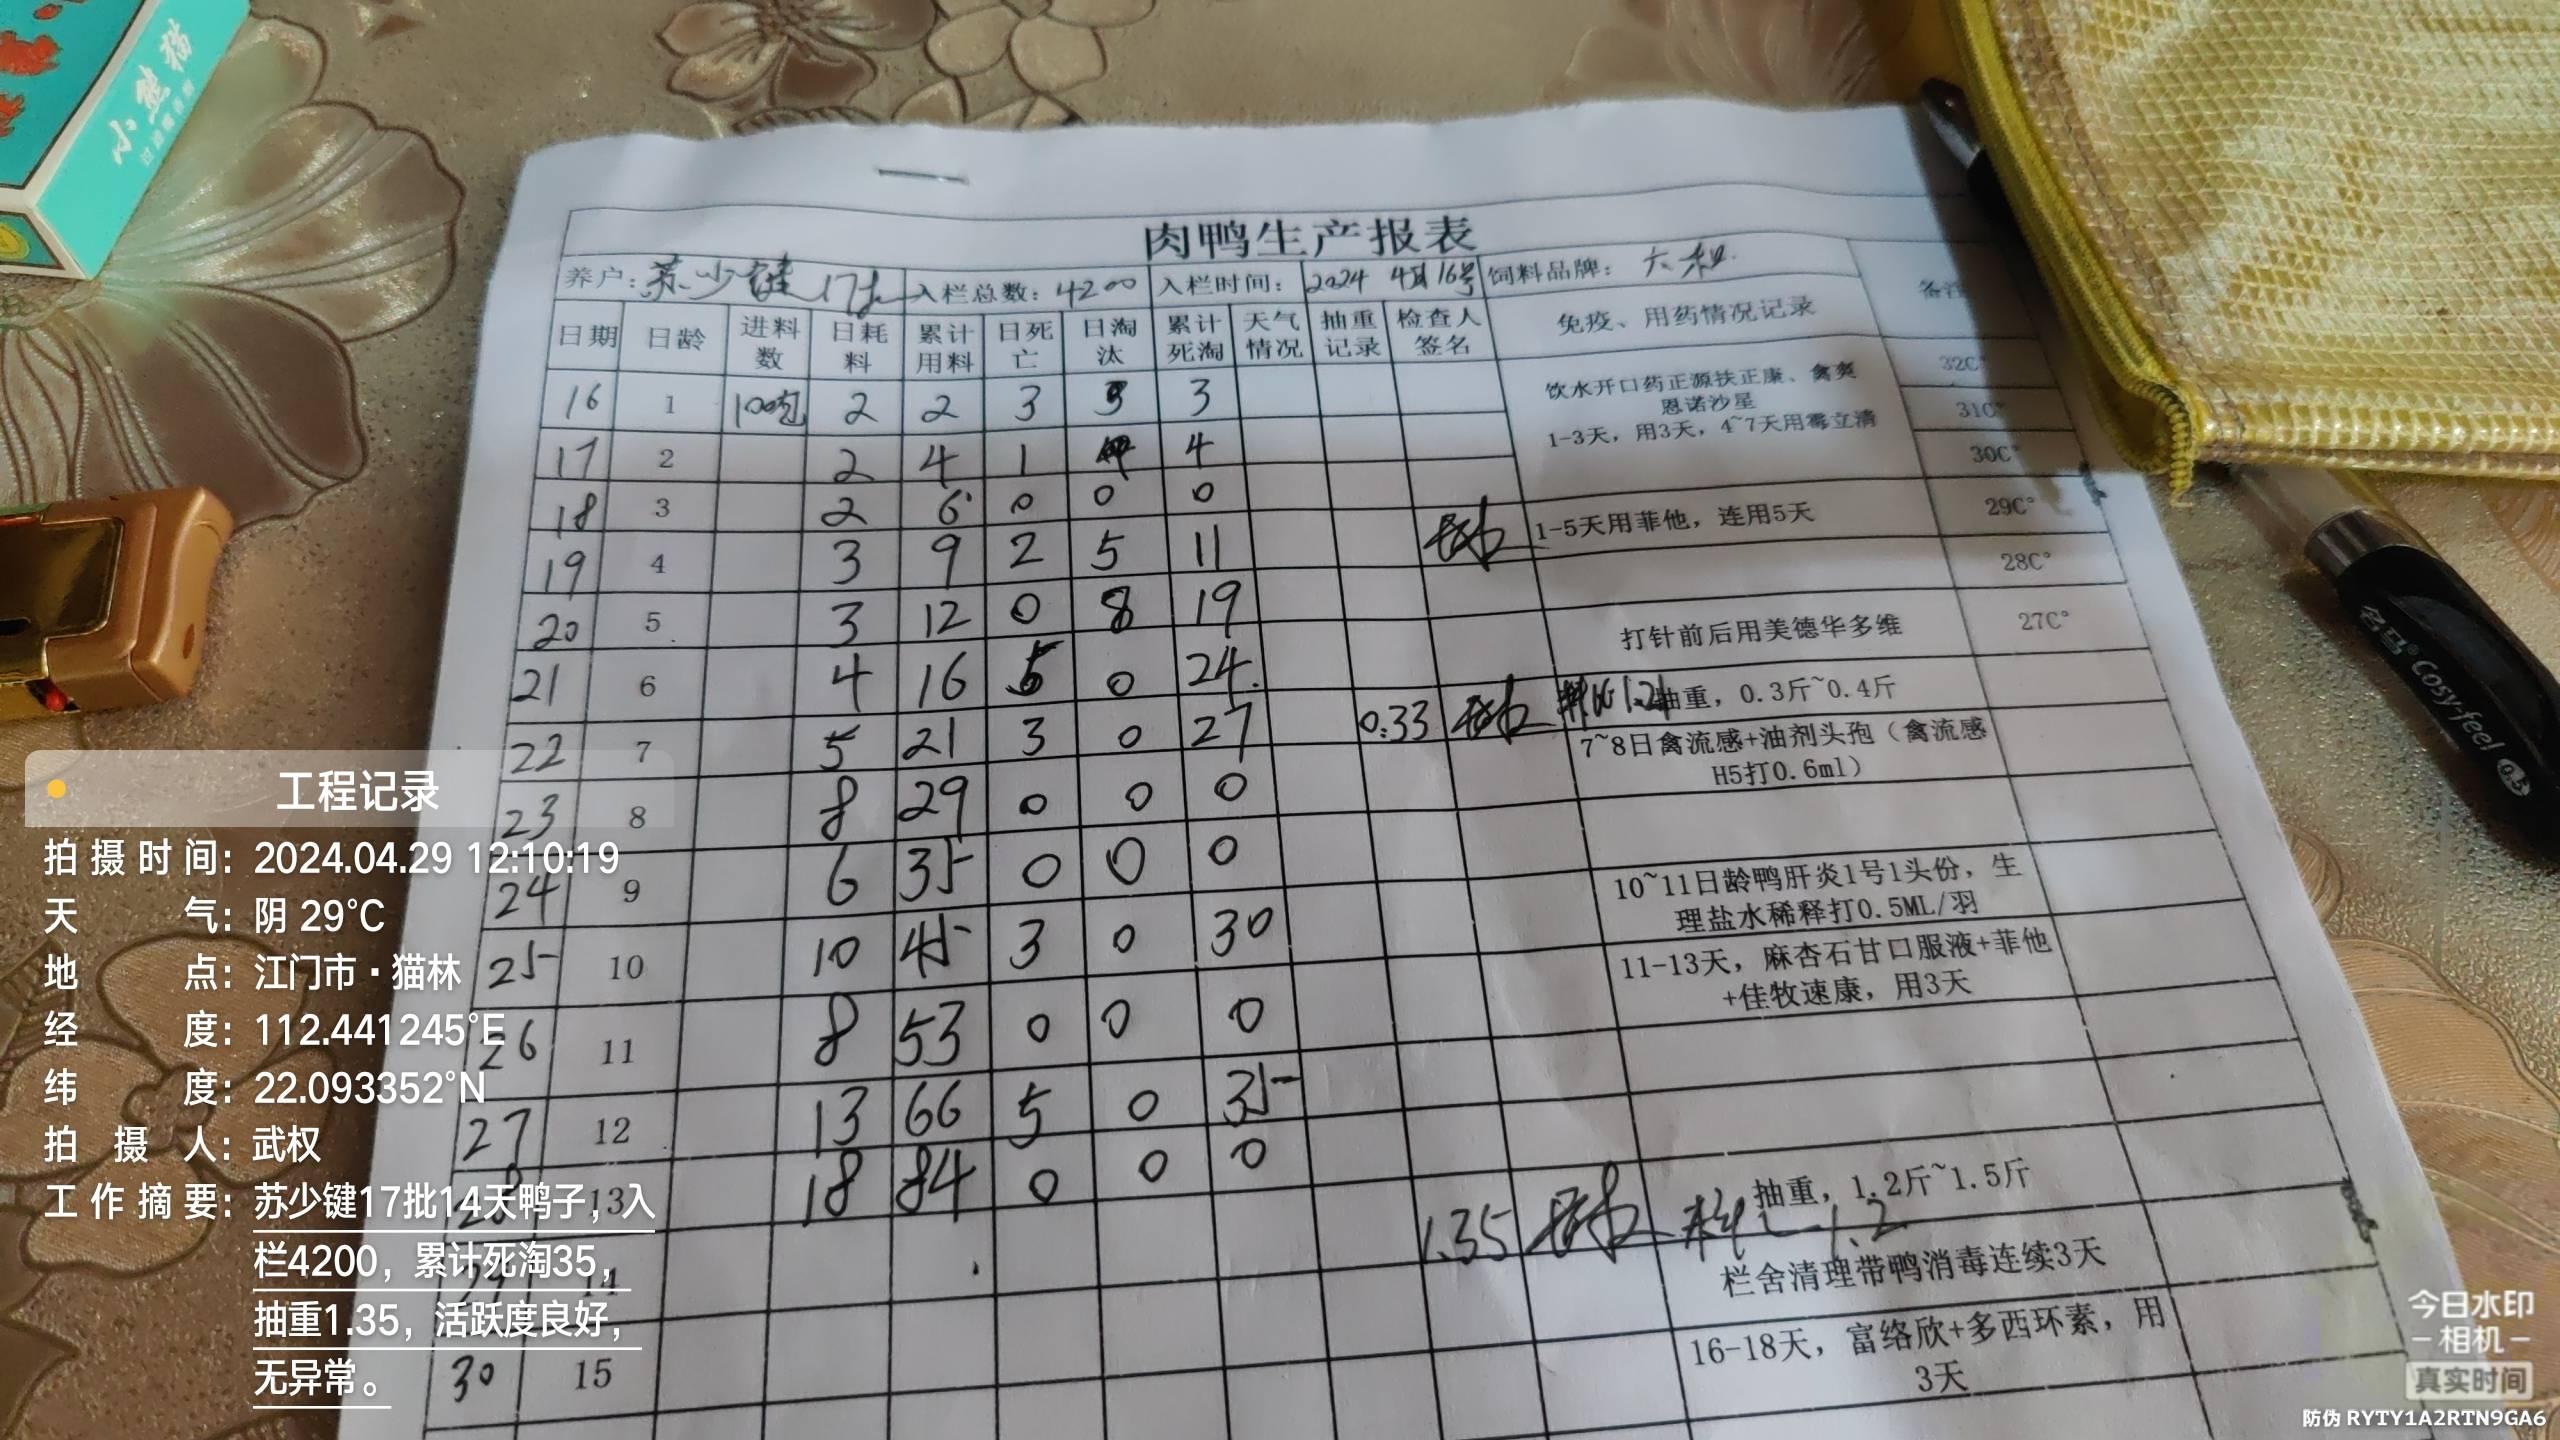 小熊猫
肉鸭生产报表
养户：苏少键 17批 入栏总数：4200 入栏时间：2024 4月16号 饲料品牌：大和
日期 日龄 进料数 日耗料 累计用料 日死亡 日淘汰 累计死淘 天气情况 抽重记录 检查人签名 免疫、用药情况记录 备注
16 1 100包 2 2 3 3
饮水开口药正源扶正康、禽爽
恩诺沙星
1-3天，用3天，4~7天用霉立清
32C°
31C°
30C°
17 2 2 4 1 4
18 3 2 6 0 0 0
19 4 3 9 2 5 11 1-5天用菲他，连用5天 29C°
28C°
20 5 3 12 0 8 19
打针前后用美德华多维 27C°
21 6 4 16 5 0 24
22 7 5 21 3 0 27 0.33 料比1.21 抽重，0.3斤~0.4斤
7~8日禽流感+油剂头孢（禽流感
H5打0.6ml）
23 8 8 29 0 0 0
24 9 6 35 0 0 0
10~11日龄鸭肝炎1号1头份，生
理盐水稀释打0.5ML/羽
25 10 10 45 3 0 30
11-13天，麻杏石甘口服液+菲他
+佳牧速康，用3天
26 11 8 53 0 0 0
27 12 13 66 5 0 35
28 13 18 84 0 0 0
抽重，1.2斤~1.5斤
29 14 1.35 料比1.2
栏舍清理带鸭消毒连续3天
30 15
16-18天，富络欣+多西环素，用
3天
名马 Cosy-feel 0.5
工程记录
拍摄时间：2024.04.29 12:10:19
天气：阴 29°C
地点：江门市·猫林
经度：112.441245°E
纬度：22.093352°N
拍摄人：武权
工作摘要：苏少键17批14天鸭子，入
栏4200，累计死淘35，
抽重1.35，活跃度良好，
无异常。
今日水印
相机
真实时间
防伪 RYTY1A2RTN9GA6